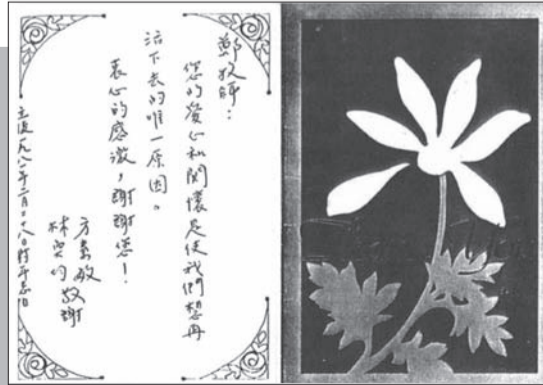 鄭牧師：
您的愛心和關懷是使我們想再
活下去的唯一原因。
衷心的感激，謝謝您！
方素敏
林奐均 敬謝
主後一九八一年二月二十八日 忌日